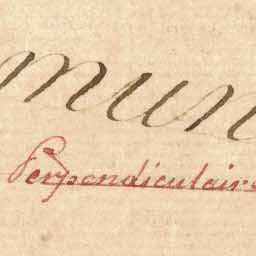 mun
Perpendiculaire